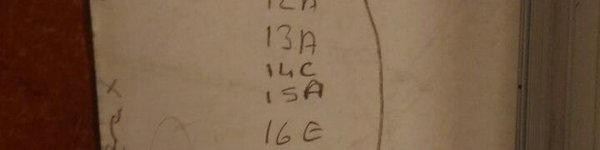 12A
13A
14C
x 15A
16E